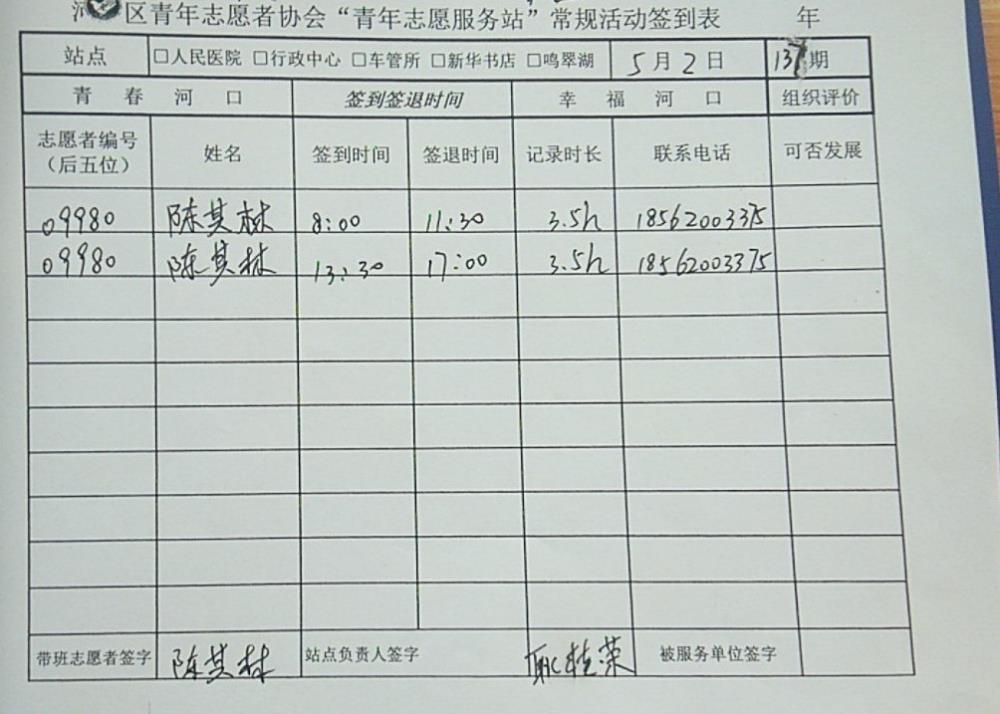 区青年志愿者协会“青年志愿服务站”常规活动签到表 年
站点 □人民医院 □行政中心 □车管所 □新华书店 □鸣翠湖 5月2日 137期
青春河口 签到签退时间 幸福河口 组织评价
志愿者编号（后五位） 姓名 签到时间 签退时间 记录时长 联系电话 可否发展
09980 陈其林 8:00 11:30 3.5h 18562003375
09980 陈其林 13:30 17:00 3.5h 18562003375
带班志愿者签字 陈其林 站点负责人签字 耿桂荣 被服务单位签字